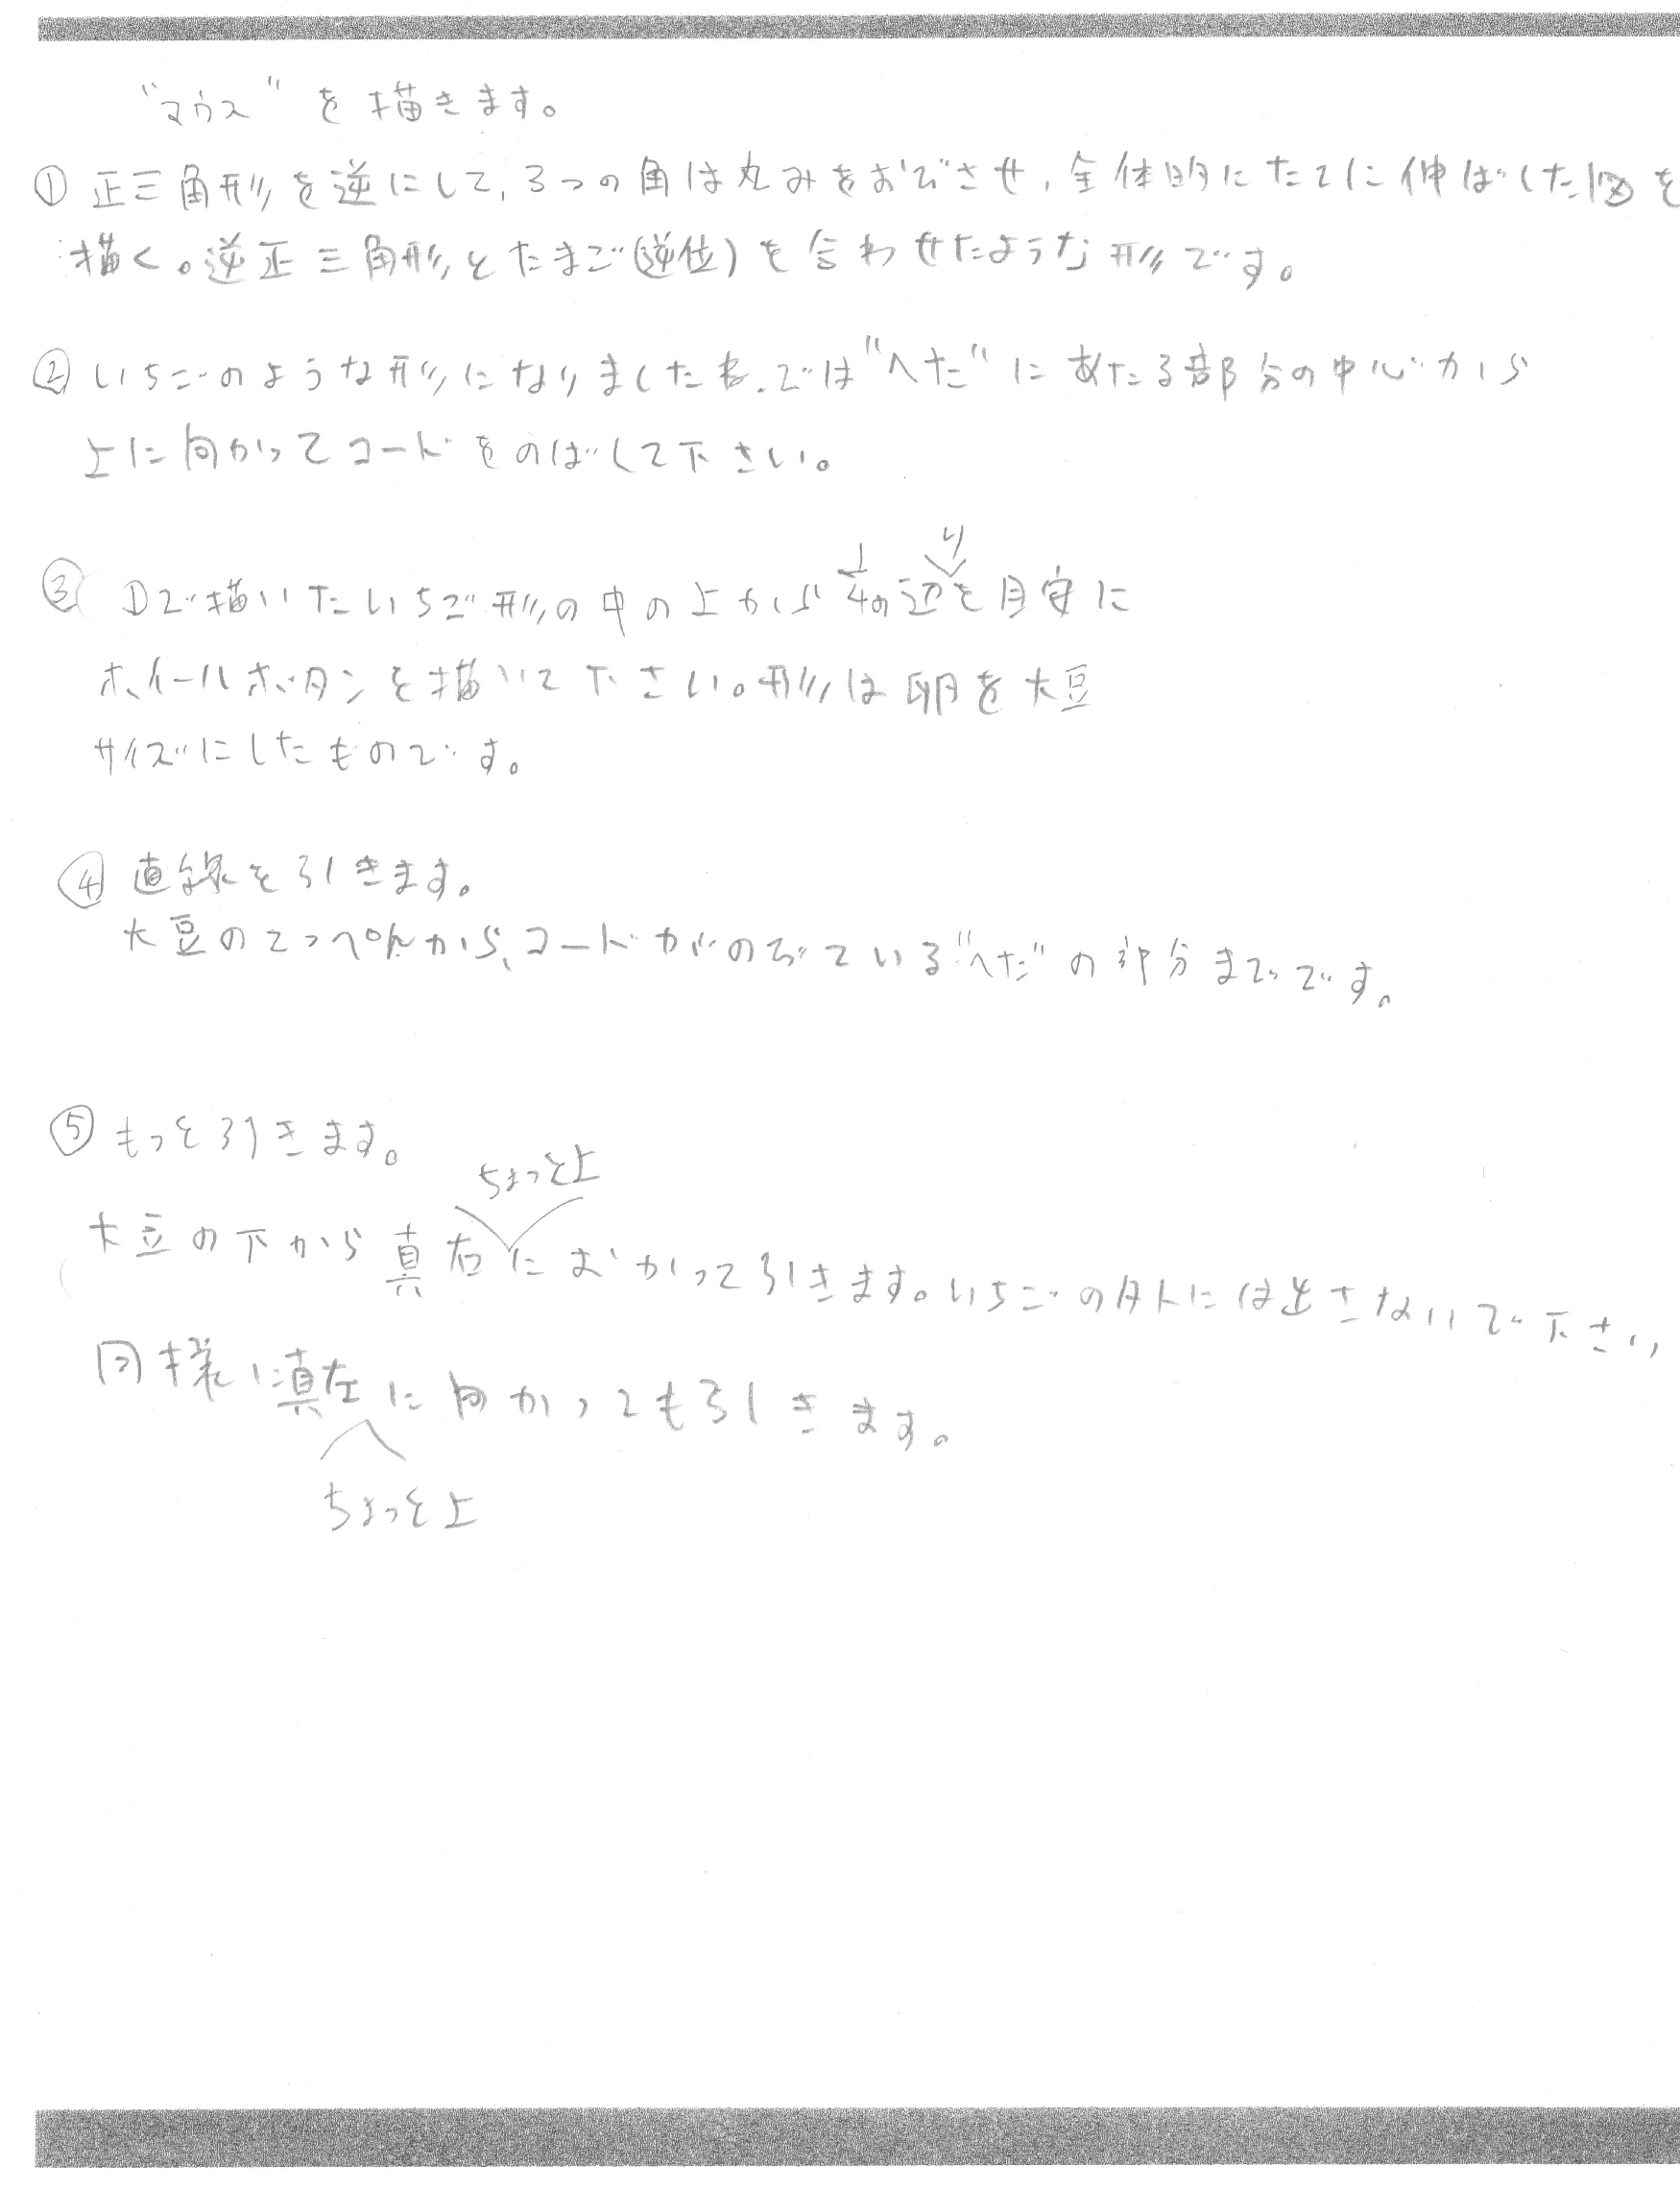 "マウス"を描きます。
① 正三角形を逆にして、3つの角は丸みをおびさせ、全体的にたてに伸ばした図を
描く。逆正三角形とたまご(逆位)を合わせたような形です。
② いちごのような形になりましたね。では"へた"にあたる部分の中心から
上に向かってコードをのばして下さい。
③ ①で描いたいちご形の中の上から1/4の辺りを目安に
ホイールボタンを描いて下さい。形は卵を大豆
サイズにしたものです。
④ 直線を引きます。
大豆のてっぺんから、コードがのびている"へた"の部分までです。
⑤ もっと引きます。
ちょっと上
大豆の下から真右にむかって引きます。いちごの外には出さないで下さい
同様に真左に向かっても引きます。
ちょっと上